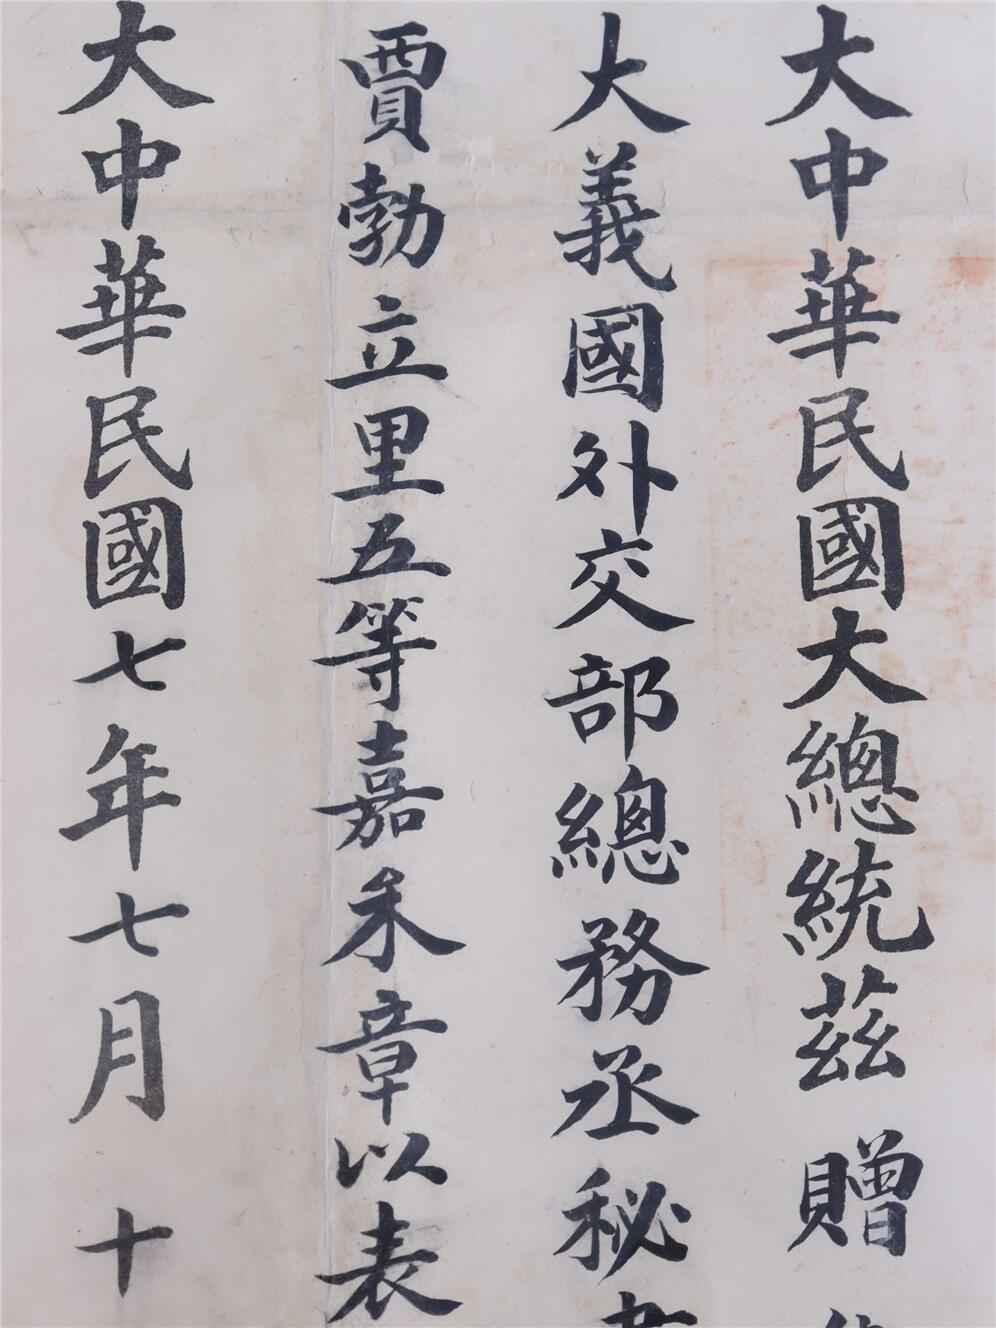 大中華民國大總統茲贈
大義國外交部總務丞秘書
賈勃立里五等嘉禾章以表
大中華民國七年七月十